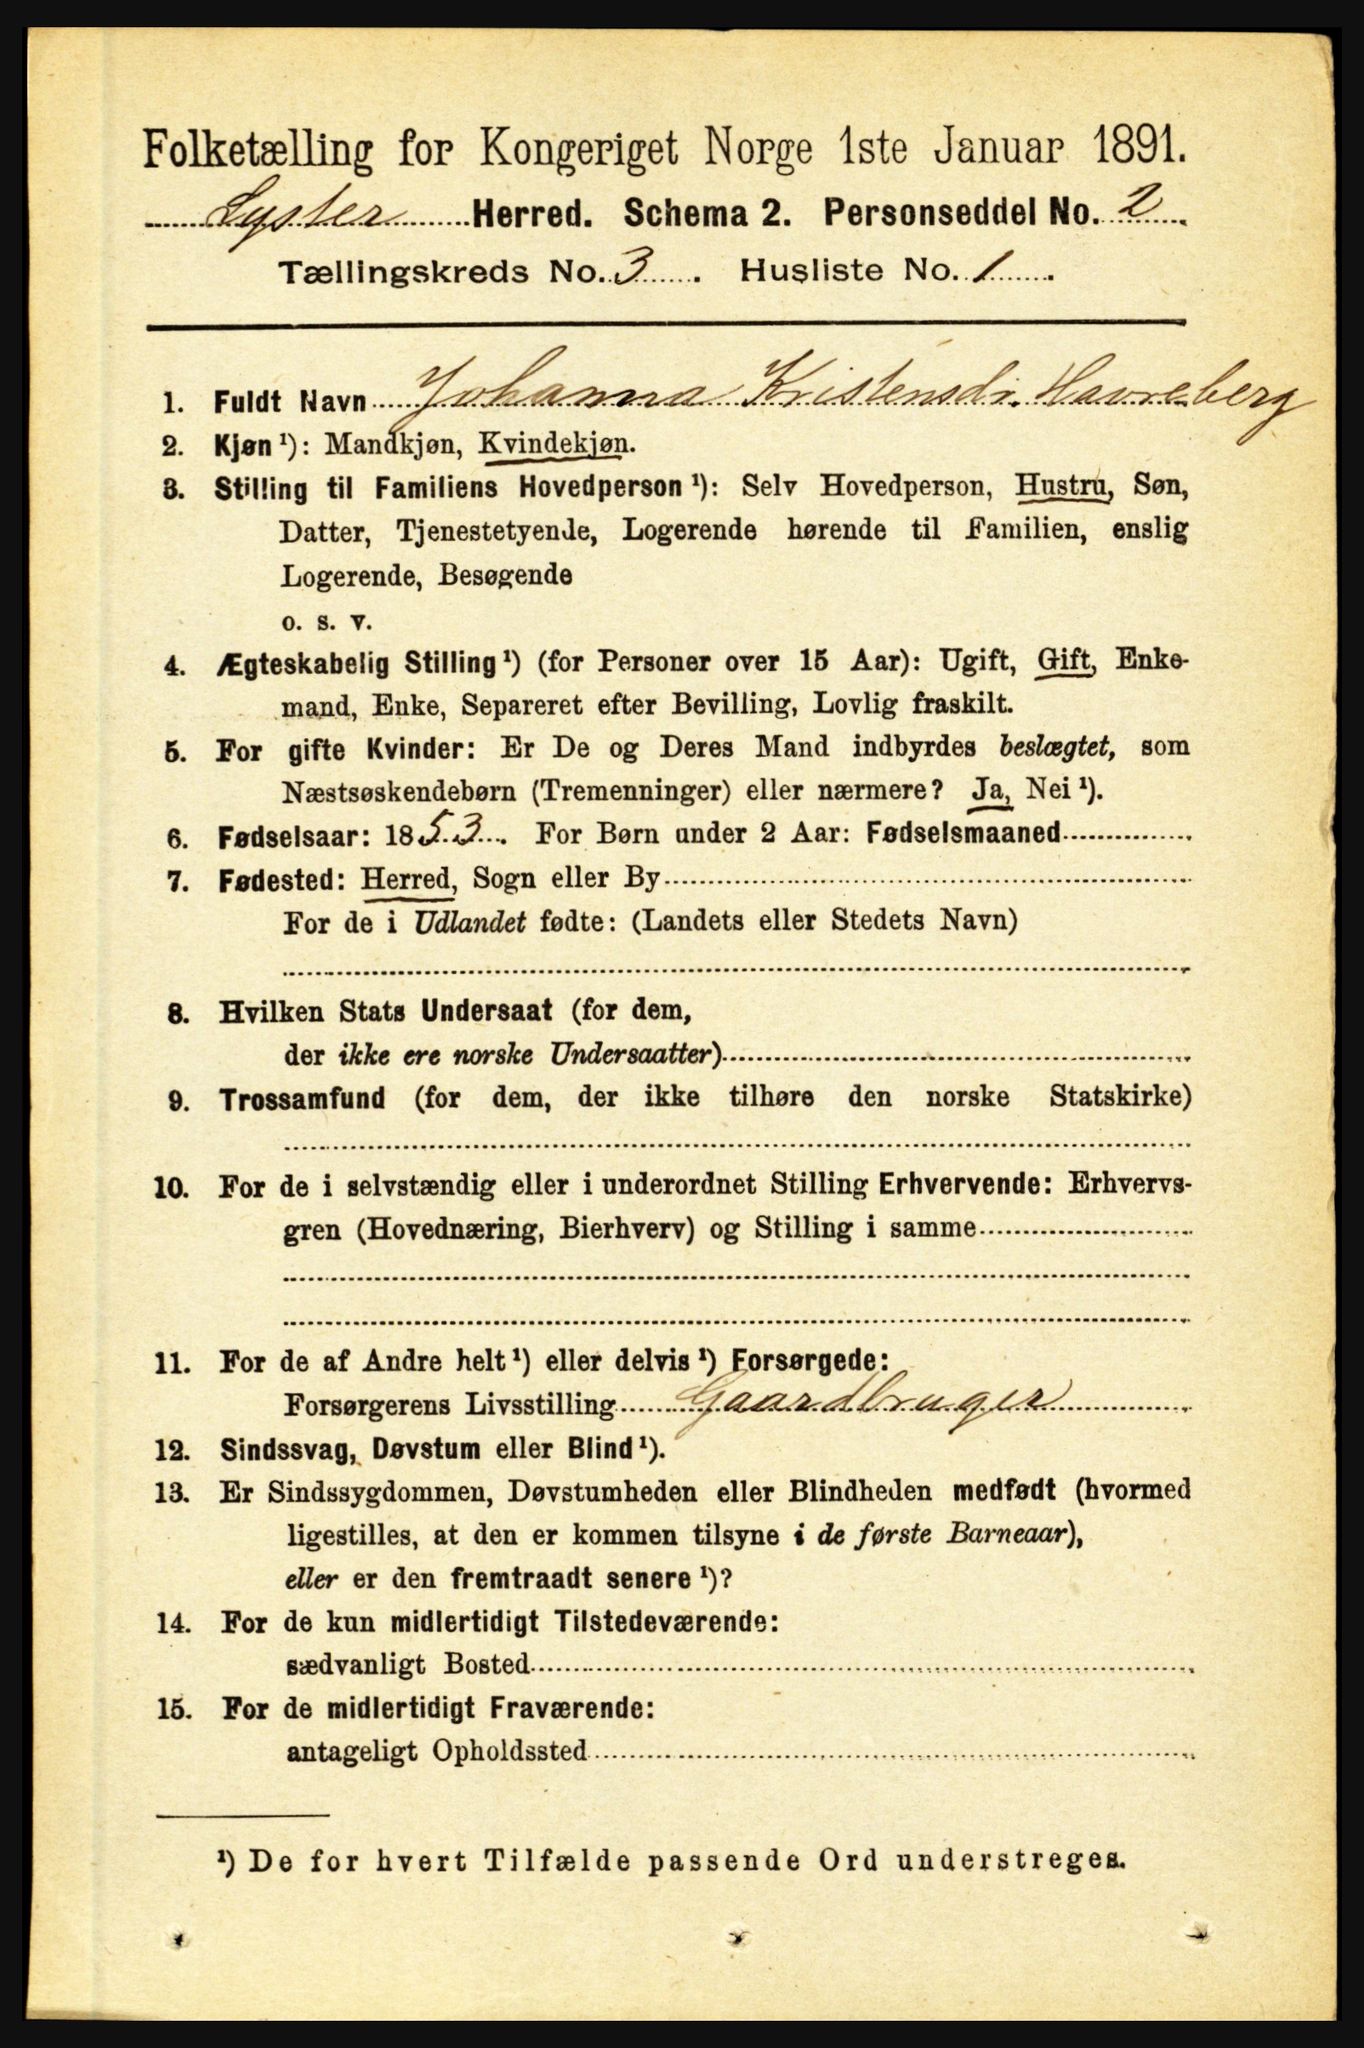 Folketælling for Kongeriget Norge 1ste Januar 1891.
Lyster Herred. Schema 2. Personseddel No. 2
Tællingskreds No. 3. Husliste No. 1.
1. Fuldt Navn Johanna Kristensdr. Havreberg
2. Kjøn¹): Mandkjøn, Kvindekjøn.
3. Stilling til Familiens Hovedperson¹): Selv Hovedperson, Hustru, Søn,
Datter, Tjenestetyende, Logerende hørende til Familien, enslig
Logerende, Besøgende
o. s. v.
4. Ægteskabelig Stilling¹) (for Personer over 15 Aar): Ugift, Gift, Enke-
mand, Enke, Separeret efter Bevilling, Lovlig fraskilt.
5. For gifte Kvinder: Er De og Deres Mand indbyrdes beslægtet, som
Næstsøskendebørn (Tremenninger) eller nærmere? Ja, Nei¹).
6. Fødselsaar: 1853. For Børn under 2 Aar: Fødselsmaaned
7. Fødested: Herred, Sogn eller By
For de i Udlandet fødte: (Landets eller Stedets Navn)
8. Hvilken Stats Undersaat (for dem,
der ikke ere norske Undersaatter)
9. Trossamfund (for dem, der ikke tilhøre den norske Statskirke)
10. For de i selvstændig eller i underordnet Stilling Erhvervende: Erhvervs-
gren (Hovednæring, Bierhverv) og Stilling i samme
11. For de af Andre helt¹) eller delvis¹) Forsørgede:
Forsørgerens Livsstilling Gaardbruger
12. Sindssvag, Døvstum eller Blind¹).
13. Er Sindssygdommen, Døvstumheden eller Blindheden medfødt (hvormed
ligestilles, at den er kommen tilsyne i de første Barneaar),
eller er den fremtraadt senere¹)?
14. For de kun midlertidigt Tilstedeværende:
sædvanligt Bosted
15. For de midlertidigt Fraværende:
antageligt Opholdssted
¹) De for hvert Tilfælde passende Ord understreges.